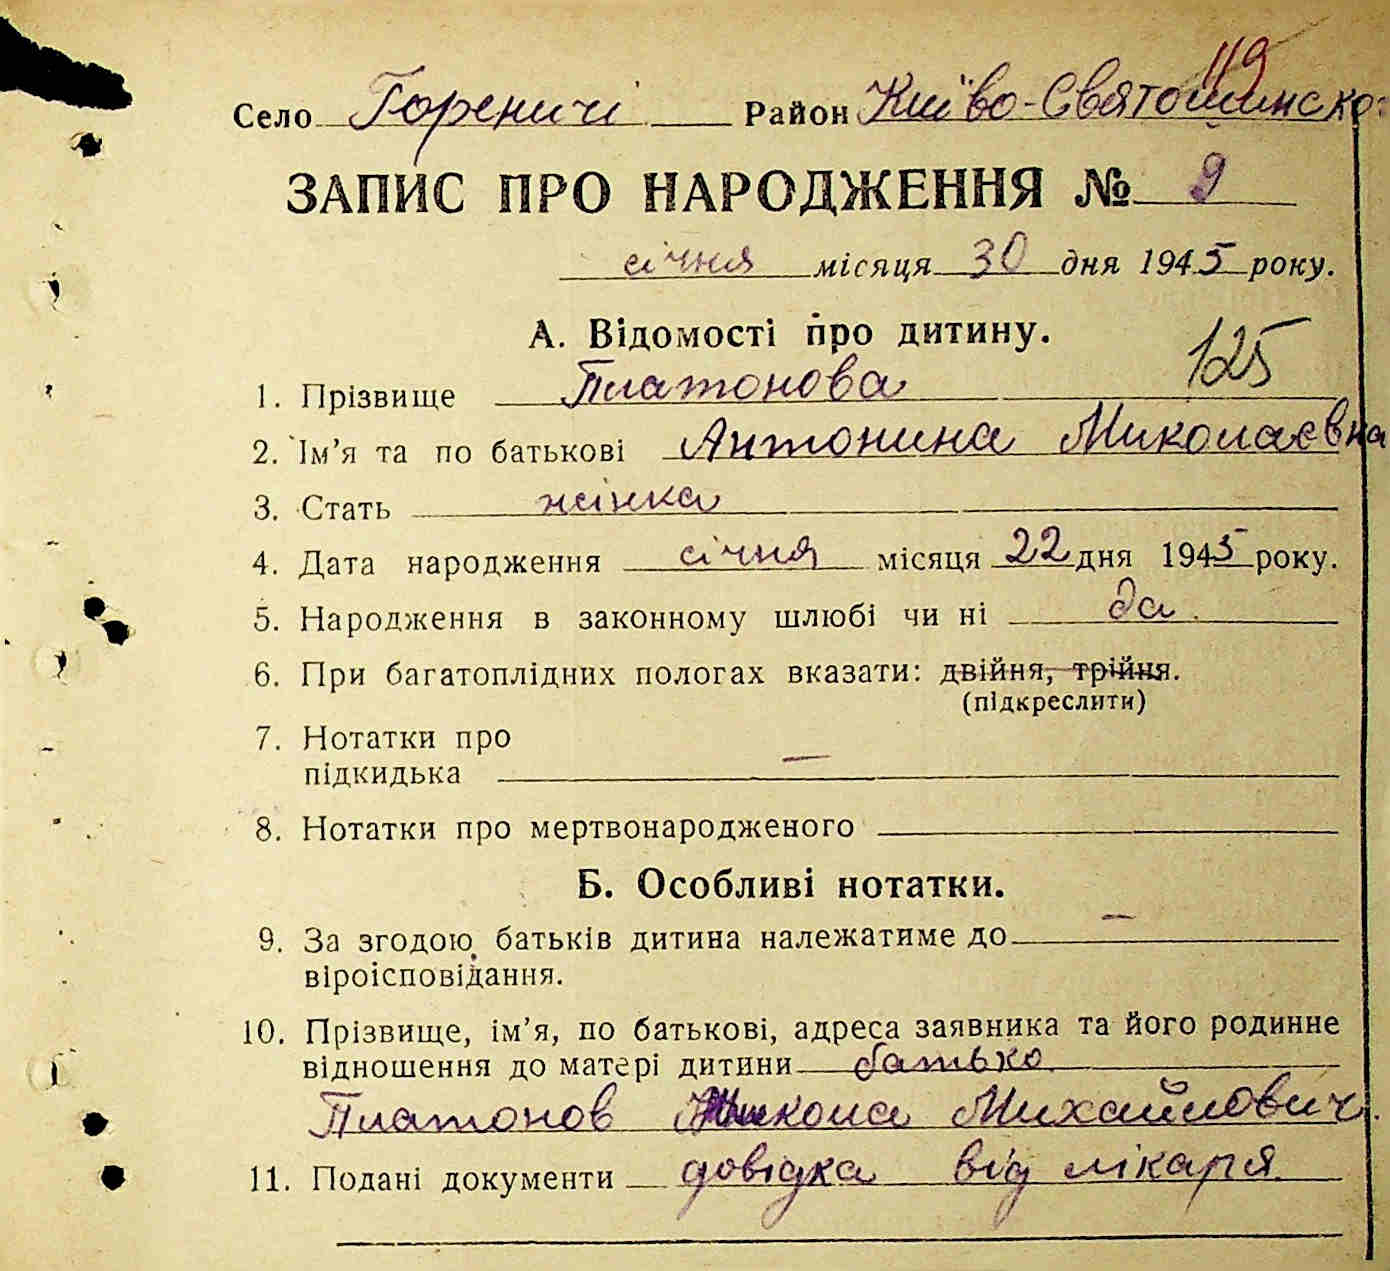 119
Село Гореничі Район Київо-Святошинско
ЗАПИС ПРО НАРОДЖЕННЯ № 9
січня місяця 30 дня 1945 року.
А. Відомості про дитину.
125
1. Прізвище Платонова
2. Ім'я та по батькові Антонина Миколаєвна
3. Стать жінка
4. Дата народження січня місяця 22 дня 1945 року.
5. Народження в законному шлюбі чи ні да.
6. При багатоплідних пологах вказати: двійня, трійня.
(підкреслити)
7. Нотатки про
підкидька —
8. Нотатки про мертвонародженого
Б. Особливі нотатки.
9. За згодою батьків дитина належатиме до —
віроісповідання.
10. Прізвище, ім'я, по батькові, адреса заявника та його родинне
відношення до матері дитини батько
Платонов Микола Михайлович.
11. Подані документи довідка від лікаря.